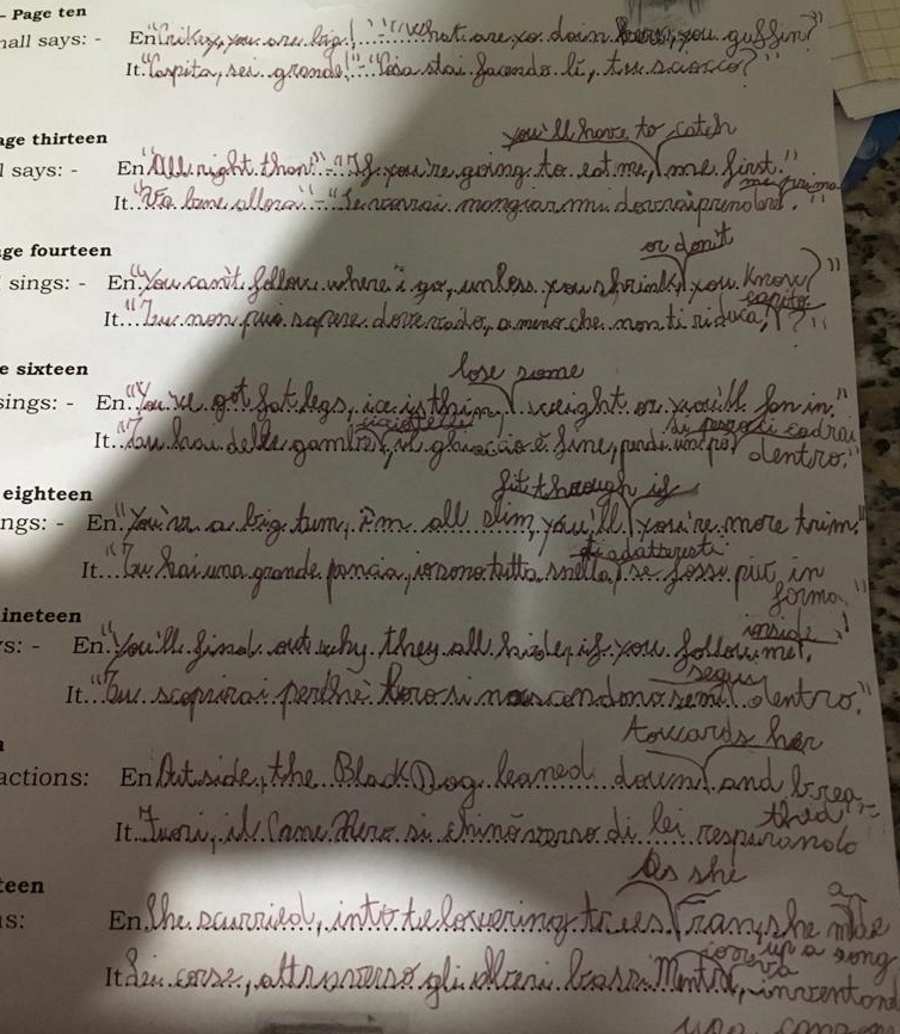 - Page ten
mall says: - En "Crikey, you are big! ... "What are yo doin here, you guffin?"
It. "Caspita, sei grande!" - "Cosa stai facendo lì, tu sciocco?"
age thirteen
you'll have to catch
l says: - En "All right then" - "If you're going to eat me, me first."
me prima
It. "Va bene allora" - "Se vorrai mangiarmi dovrai prendere."
ge fourteen
or don't
sings: - En. "You can't follow where i go, unless you shrink, you know?"
capito
It... "Tu non puoi sapere dove vado, a meno che non ti riduca, ?"
e sixteen
lose some
sings: - En. "You've got fat legs, ice is thin, weight or you'll fan in."
cicciottelle
It. "Tu hai delle gambe, il ghiaccio è fine, perdi un po'
di peso o ti cadrai
dentro."
eighteen
fit through if
ngs: - En "You've a big tum, I'm all slim, you'll you're more trim."
ti adatteresti
It... "Tu hai una grande pancia, io sono tutta snella, se fossi più in
forma."
ineteen
inside!
s: - En. "You'll find out why they all hide, if you follow me,
segui
It... "Tu scoprirai perchè loro si nascondono se mi dentro."
towards her
actions: En Outside, the Black Dog leaned down and brea
thed
It. Fuori, il Cane Nero si chinò verso di lei respirando
teen
As she
s: En She scurried, into te lowering trees ran, she made
up a song
correva
It Lei corse, attraverso gli alberi bassi. Mentre, inventand